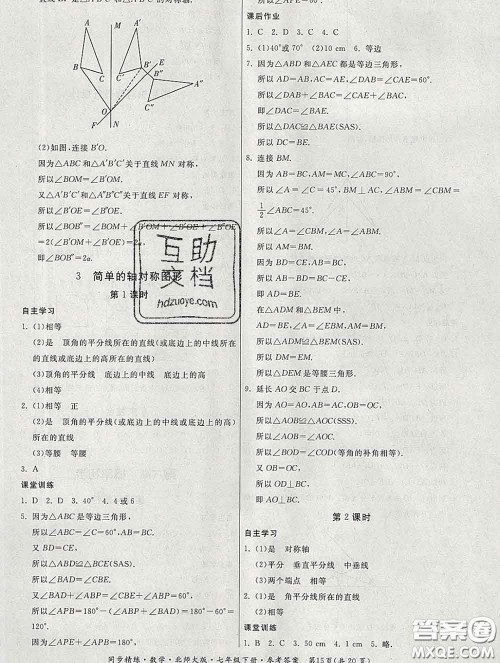 A
A′
B
C
B′
E
B″
C′
C″
A″
O
F
M
N
(2)如图,连接 B′O.
因为△ABC 和△A′B′C′关于直线 MN 对称,
所以∠BOM=∠B′OM.
又△A′B′C′和△A″B″C″关于直线 EF 对称,
所以∠B′OE=∠B″OE.
所以∠BOB″=∠BOM+∠B′OM+∠B′OE+∠B″OE
=2(∠B′OM+∠B′OE)=2α.
即∠BOB″=2α.
3 简单的轴对称图形
第 1 课时
自主学习
1. (1)相等
(2)是 顶角的平分线所在的直线(或底边上的中线所在
的直线或底边上的高所在的直线)
(3)顶角的平分线 底边上的中线 底边上的高
(4)相等
2. (1)相等 正
(2)是 顶角的平分线(或底边上的中线或底边上的高)
所在的直线
(3)等腰 等腰
3. A
课堂训练
1. D 2. D 3. 40° 4. 4 或 6
5. 因为△ABC 是等边三角形,
所以∠ABC=∠C=60°,AB=BC.
又 BD=CE,
所以△ABD≌△BCE(SAS).
所以∠BAD=∠CBE.
又∠BAD+∠ABP=∠CBE+∠ABP=∠ABC,
所以∠BAD+∠ABP=60°.
所以∠APB=180°-(∠BAD+∠ABP)=180°-60°
=120°,
所以∠APE=180°-∠APB=180°-120°=60°.
所以∠APE=60°.
课后作业
1. C 2. D 3. D 4. C
5. (1)40°或 70° (2)10 cm 6. 等边
7. 因为△ABD 和△AEC 都是等边三角形,
所以 AD=AB,AE=AC,∠DAB=∠CAE=60°.
所以∠DAB+∠BAE=∠CAE+∠BAE,
即∠DAE=∠BAC.
所以△DAE≌△BAC(SAS).
所以 DE=BC.
8. 连接 BM.
因为 AB=BC,AM=MC,∠ABC=90°,
所以∠A=∠C=45°,BM⊥AC,∠ABM=∠CBM=
1/2∠ABC=45°.
所以∠A=∠ABM.
所以 AM=BM.
因为 BD=CE,AB=BC,
所以 AB-BD=BC-CE,
即 AD=BE.
又∠A=∠EBM=45°,AM=BM,
所以△ADM≌△BEM(SAS).
所以 DM=EM.
所以△DEM 是等腰三角形.
9. 延长 AO 交 BC 于点 D.
因为 AB=AC,AO=AO,OB=OC,
所以△ABO≌△ACO(SSS).
所以∠BAO=∠CAO,∠AOB=∠AOC.
所以∠BOD=∠COD(等角的补角相等).
又 OB=OC,
所以 OD⊥BC,
即 AO⊥BC.
第 2 课时
自主学习
1. (1)是 对称轴
(2)平分 垂直平分线 中垂线
(3)两个端点 相等
2. (1)是 角平分线所在的直线
(2)相等
课堂训练
1. B 2. C 3. C 4. 5 5. 略.
同步精练·数学·北师大版·七年级下册·参考答案 第15页(共20页)
互助
文档
hdzuoye.com